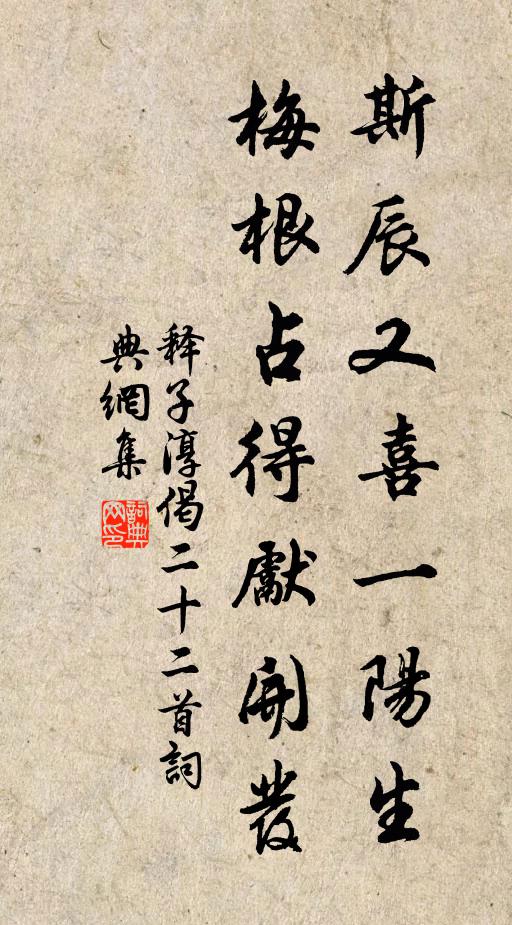 斯辰又喜一陽生
梅根占得獻開發
释子淳偈二十二首詞
典網集
詞典
网印